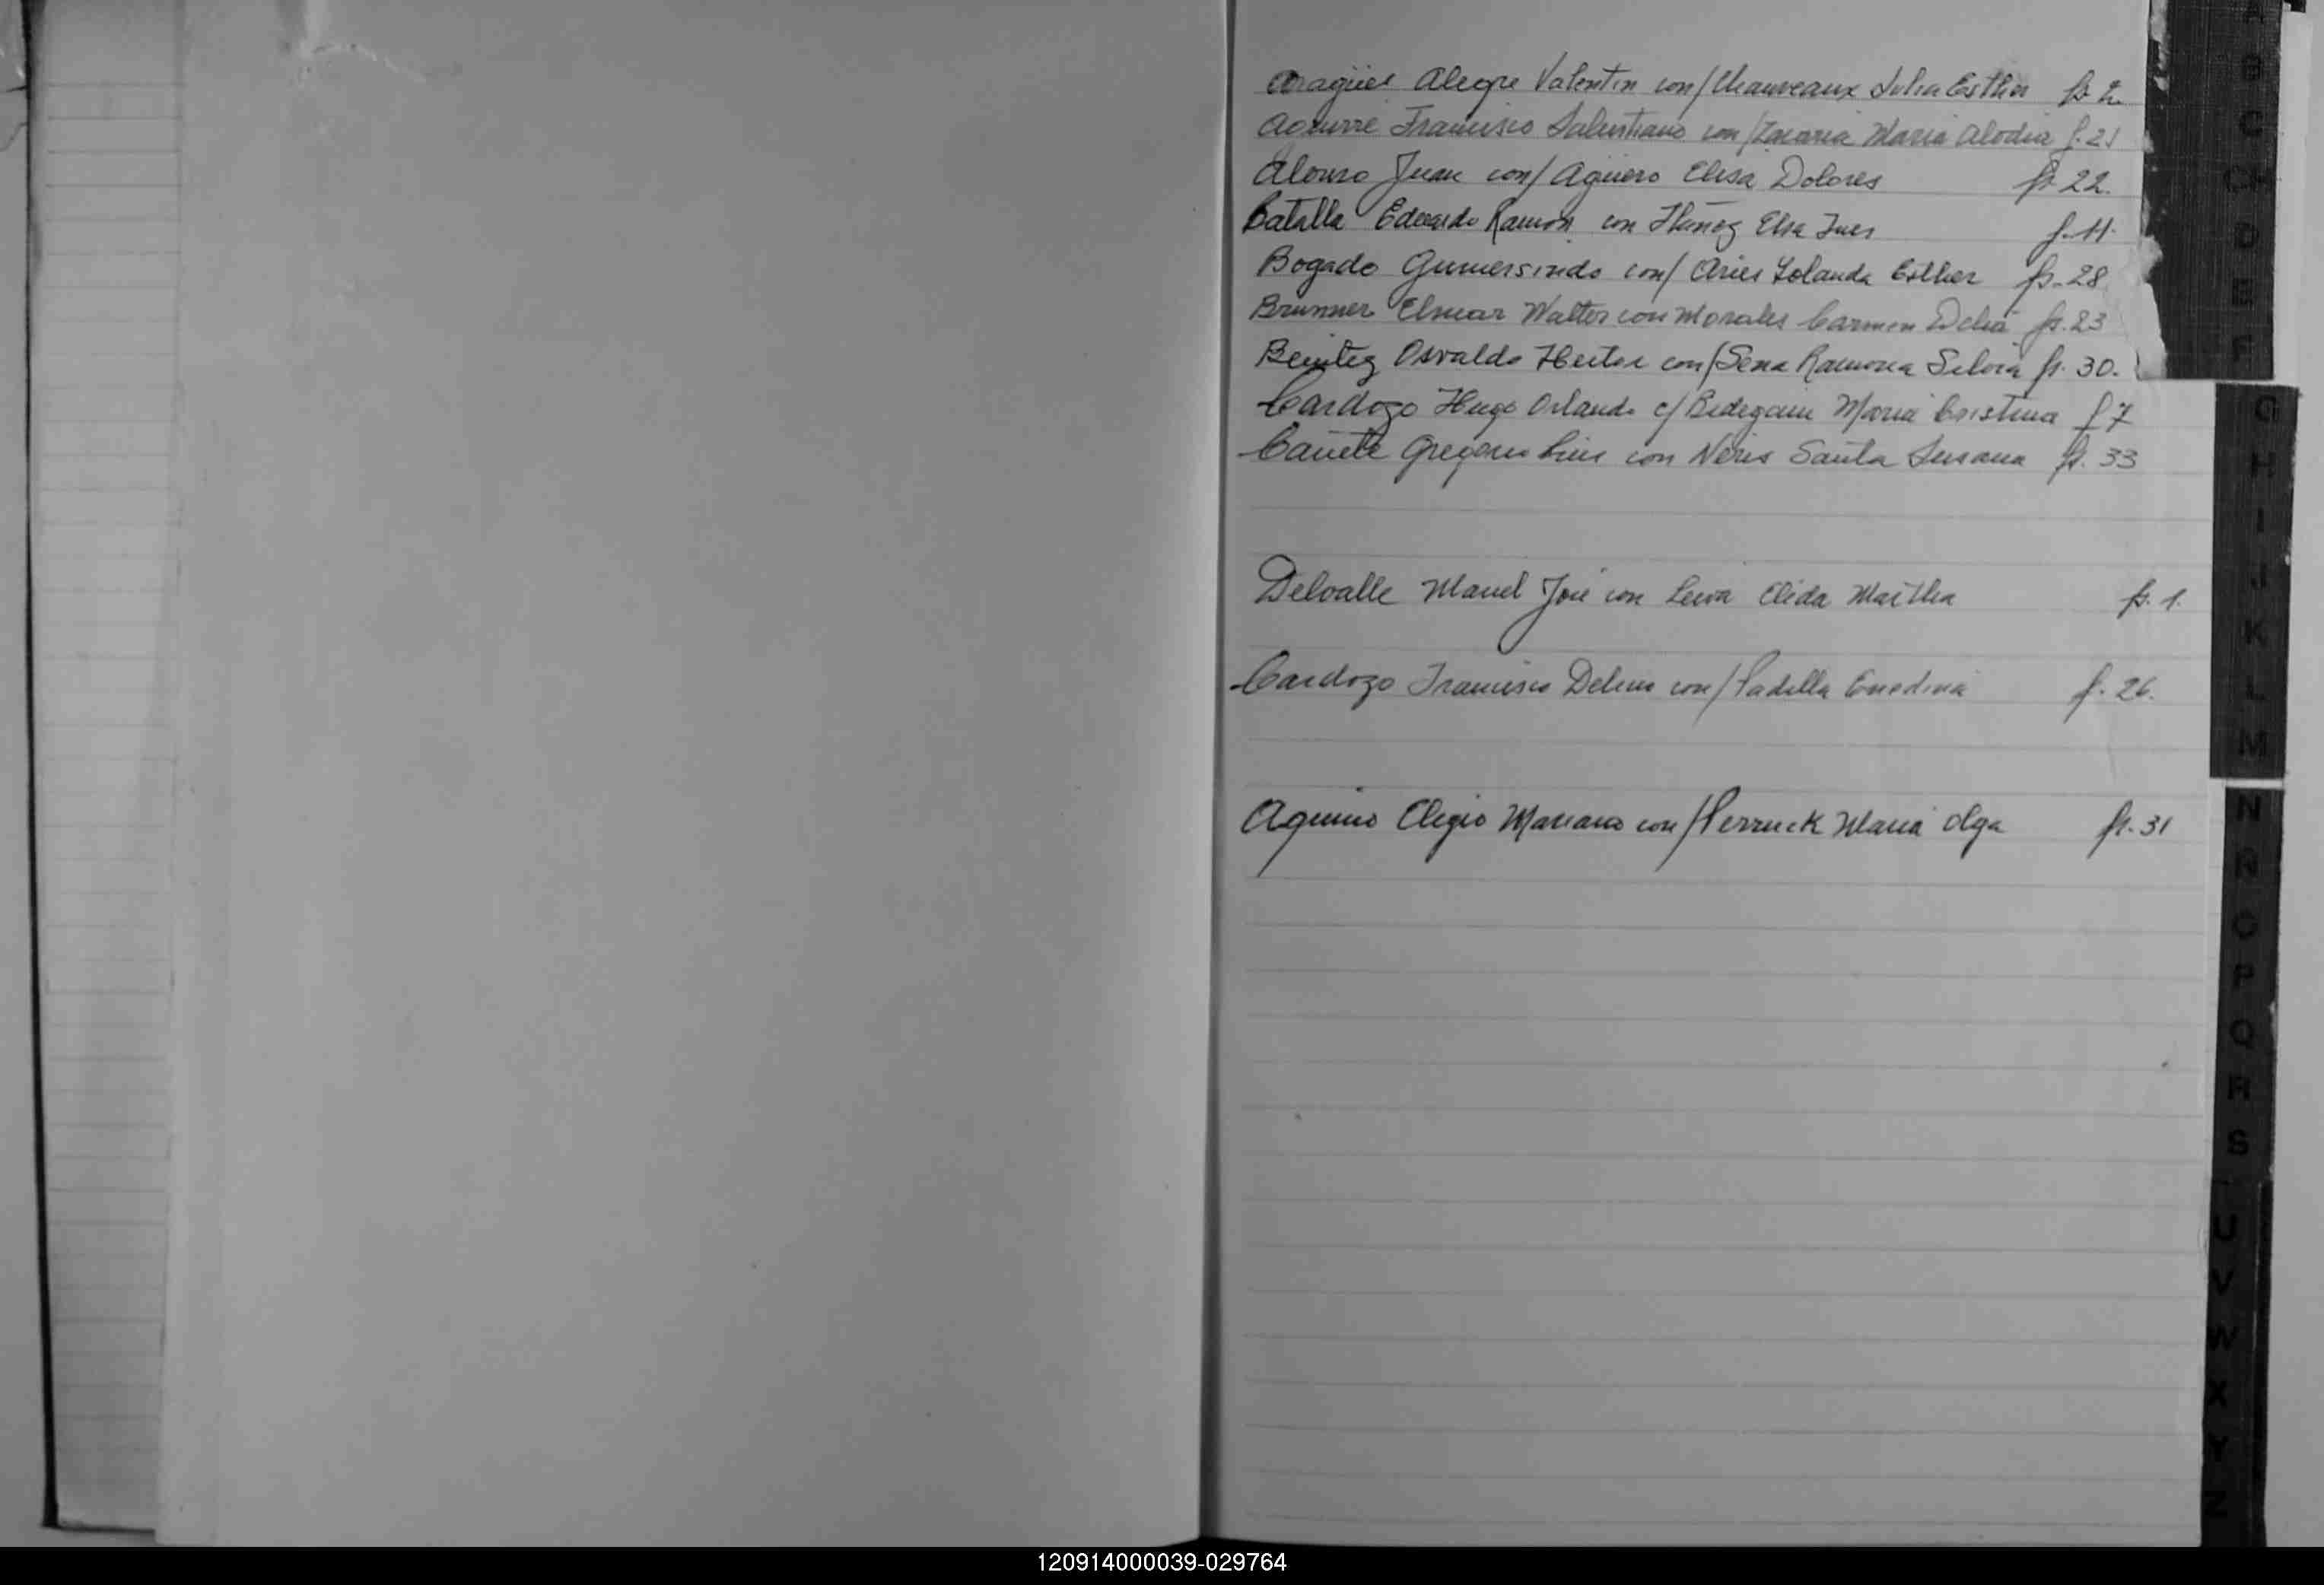 Aragües Alegre Valentin con/Chauveaux Julia Esther fs 2.
Aguirre Francisco Salustiano con/Zacaria Maria Alodia f. 21
Alonso Juan con/ Agüero Elisa Dolores fs 22.
Batalla Eduardo Ramón con Ibañez Elsa Ines f. 11.
Bogado Gumersindo con/ Aries Yolanda Esther fs. 28
Brunner Elmar Walter con Morales Carmen Delia fs. 23
Benitez Osvaldo Hector con/Sena Ramona Silvia fs. 30.
Cardozo Hugo Orlando c/ Bidegain Maria Cristina f 7
Cañete Gregorio Luis con Neris Santa Susana fs. 33
Delvalle Manel José con Leiva Elida Martha fs. 1.
Cardozo Francisco con/Padilla Enedina f. 26.
Aquino Eligio Mariano con/ Maria Olga fs. 31
A
B
C
D
E
F
G
H
I
J
K
L
M
N
Ñ
O
P
Q
R
S
U
V
W
X
Y
Z
120914000039-029764